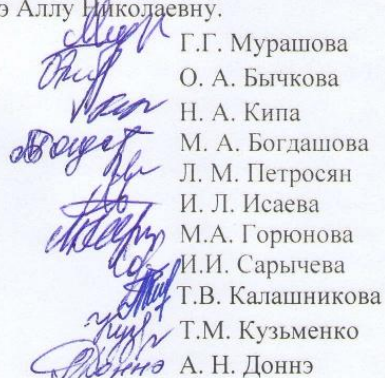 э Аллу Николаевну.
Г.Г. Мурашова
О. А. Бычкова
Н. А. Кипа
М. А. Богдашова
Л. М. Петросян
И. Л. Исаева
М.А. Горюнова
И.И. Сарычева
Т.В. Калашникова
Т.М. Кузьменко
А. Н. Доннэ